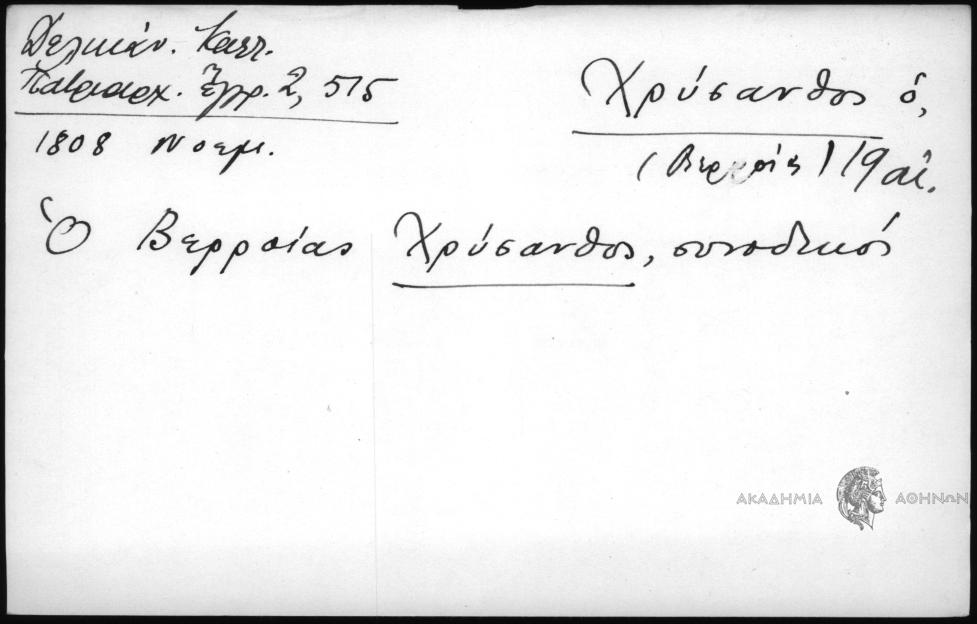 Δελικάν. Καλλ.
Πατριαρχ. Ἔγγρ. 2, 515
1808 Νοεμ.
Χρύσανθος ὁ,
(Βερροίας) 19 αἰ.
Ὁ Βερροίας Χρύσανθος, συνοδικός
ΑΚΑΔΗΜΙΑ ΑΘΗΝΩΝ